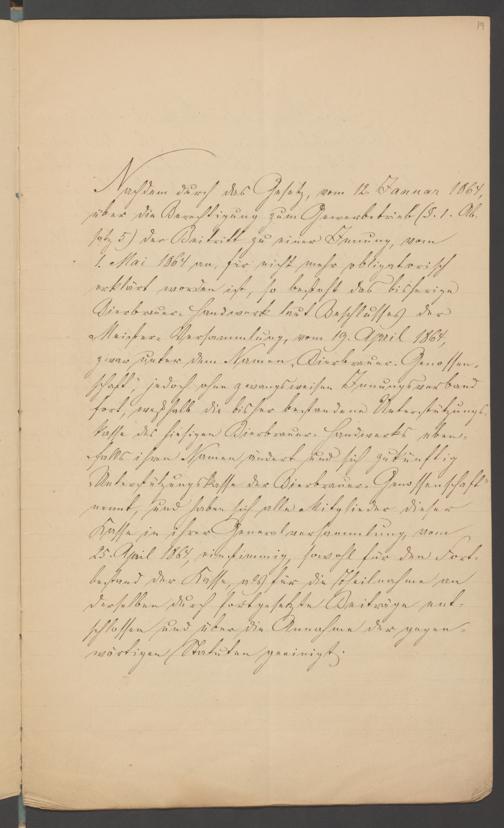 19
Nachdem durch das Gesetz, vom 12. Januar 1864,
über die Berechtigung zum Gewerbetrieb (§. 1. Ab-
satz 5) der Beitritt zu einer Innung, vom
1. Mai 1864 an, für nicht mehr obligatorisch
erklärt worden ist, so besteht das bisherige
Bierbrauer-Handwerk laut Beschlusses der
Meister-Versammlung, vom 19. April 1864,
zwar unter dem Namen „Bierbrauer-Genossen-
schaft“, jedoch ohne zwangsweisen Innungsverband
fort, weßhalb die bisher bestandene Unterstützungs-
kasse des hiesigen Bierbrauer-Handwerks eben-
falls ihren Namen ändert und sich zukünftig
„Unterstützungskasse der Bierbrauer-Genossenschaft“
nennt, und haben sich alle Mitglieder dieser
Kasse in ihrer Generalversammlung vom
25. April 1864, einstimmig, sowohl für den Fort-
bestand der Kasse, als für die Theilnahme an
derselben durch fortgesetzte Beiträge ent-
schlossen und über die Annahme der gegen-
wärtigen Statuten geeinigt: